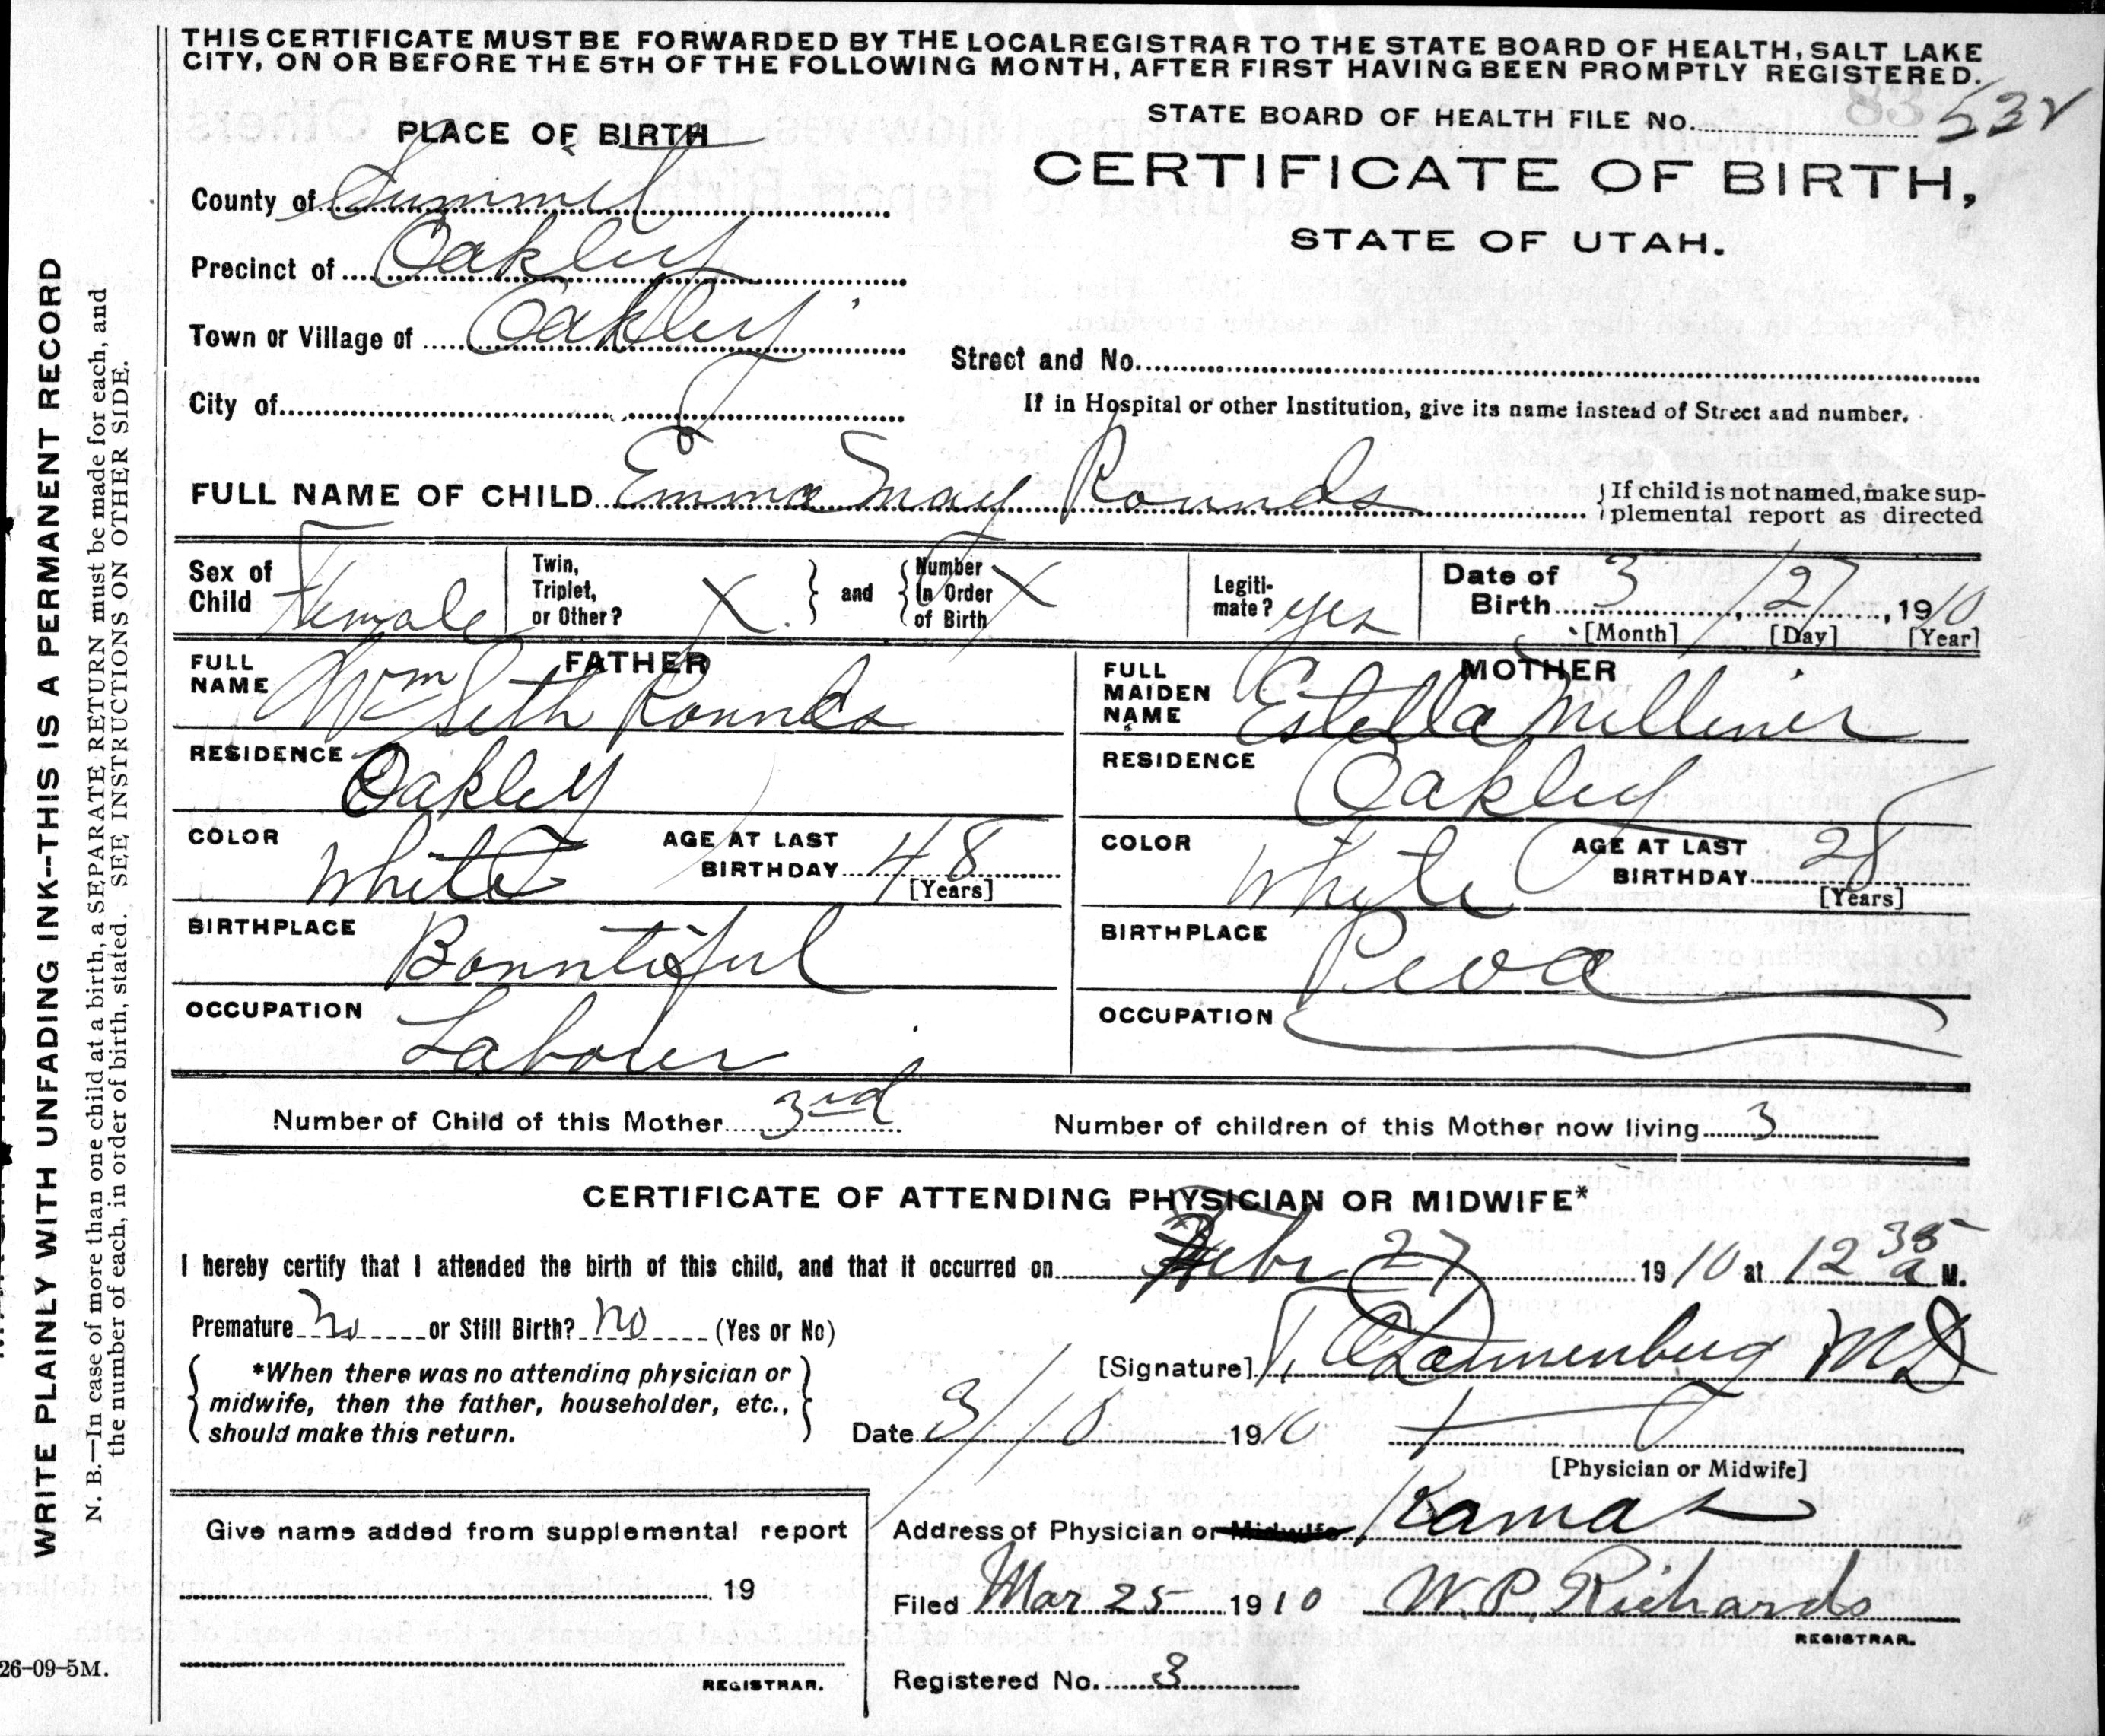 THIS CERTIFICATE MUST BE FORWARDED BY THE LOCAL REGISTRAR TO THE STATE BOARD OF HEALTH, SALT LAKE
CITY, ON OR BEFORE THE 5TH OF THE FOLLOWING MONTH, AFTER FIRST HAVING BEEN PROMPTLY REGISTERED.
STATE BOARD OF HEALTH FILE No. 83 532
PLACE OF BIRTH
CERTIFICATE OF BIRTH,
STATE OF UTAH.
County of Summit
Precinct of Oakley
Town or Village of Oakley
Street and No.
City of
If in Hospital or other Institution, give its name instead of Street and number.
FULL NAME OF CHILD Emma May Rounds
If child is not named, make sup-
plemental report as directed
Sex of Child Female
Twin, Triplet, or Other? X and Number In Order of Birth X
Legiti-mate? yes
Date of Birth 3 / 27, 1910
[Month] [Day] [Year]
FATHER
FULL NAME Wm Seth Rounds
RESIDENCE Oakley
COLOR White AGE AT LAST BIRTHDAY 48
[Years]
BIRTHPLACE Bountiful
OCCUPATION Labourer
MOTHER
FULL MAIDEN NAME Estella Milliner
RESIDENCE Oakley
COLOR White AGE AT LAST BIRTHDAY 28
[Years]
BIRTHPLACE Peoa
OCCUPATION
Number of Child of this Mother 3rd Number of children of this Mother now living 3
CERTIFICATE OF ATTENDING PHYSICIAN OR MIDWIFE*
I hereby certify that I attended the birth of this child, and that it occurred on Febr 27 1910 at 12 35 a M.
Premature No or Still Birth? No (Yes or No)
*When there was no attending physician or
midwife, then the father, householder, etc.,
should make this return.
[Signature] Dannenberg MD
Date 3/10 1910
[Physician or Midwife]
Address of Physician or Midwife Kamas
Filed Mar 25 1910 W.P. Richards
REGISTRAR.
Registered No. 3
Give name added from supplemental report
19
REGISTRAR.
WRITE PLAINLY WITH UNFADING INK--THIS IS A PERMANENT RECORD
N. B.—In case of more than one child at a birth, a SEPARATE RETURN must be made for each, and
the number of each, in order of birth, stated. SEE INSTRUCTIONS ON OTHER SIDE.
26-09-5M.